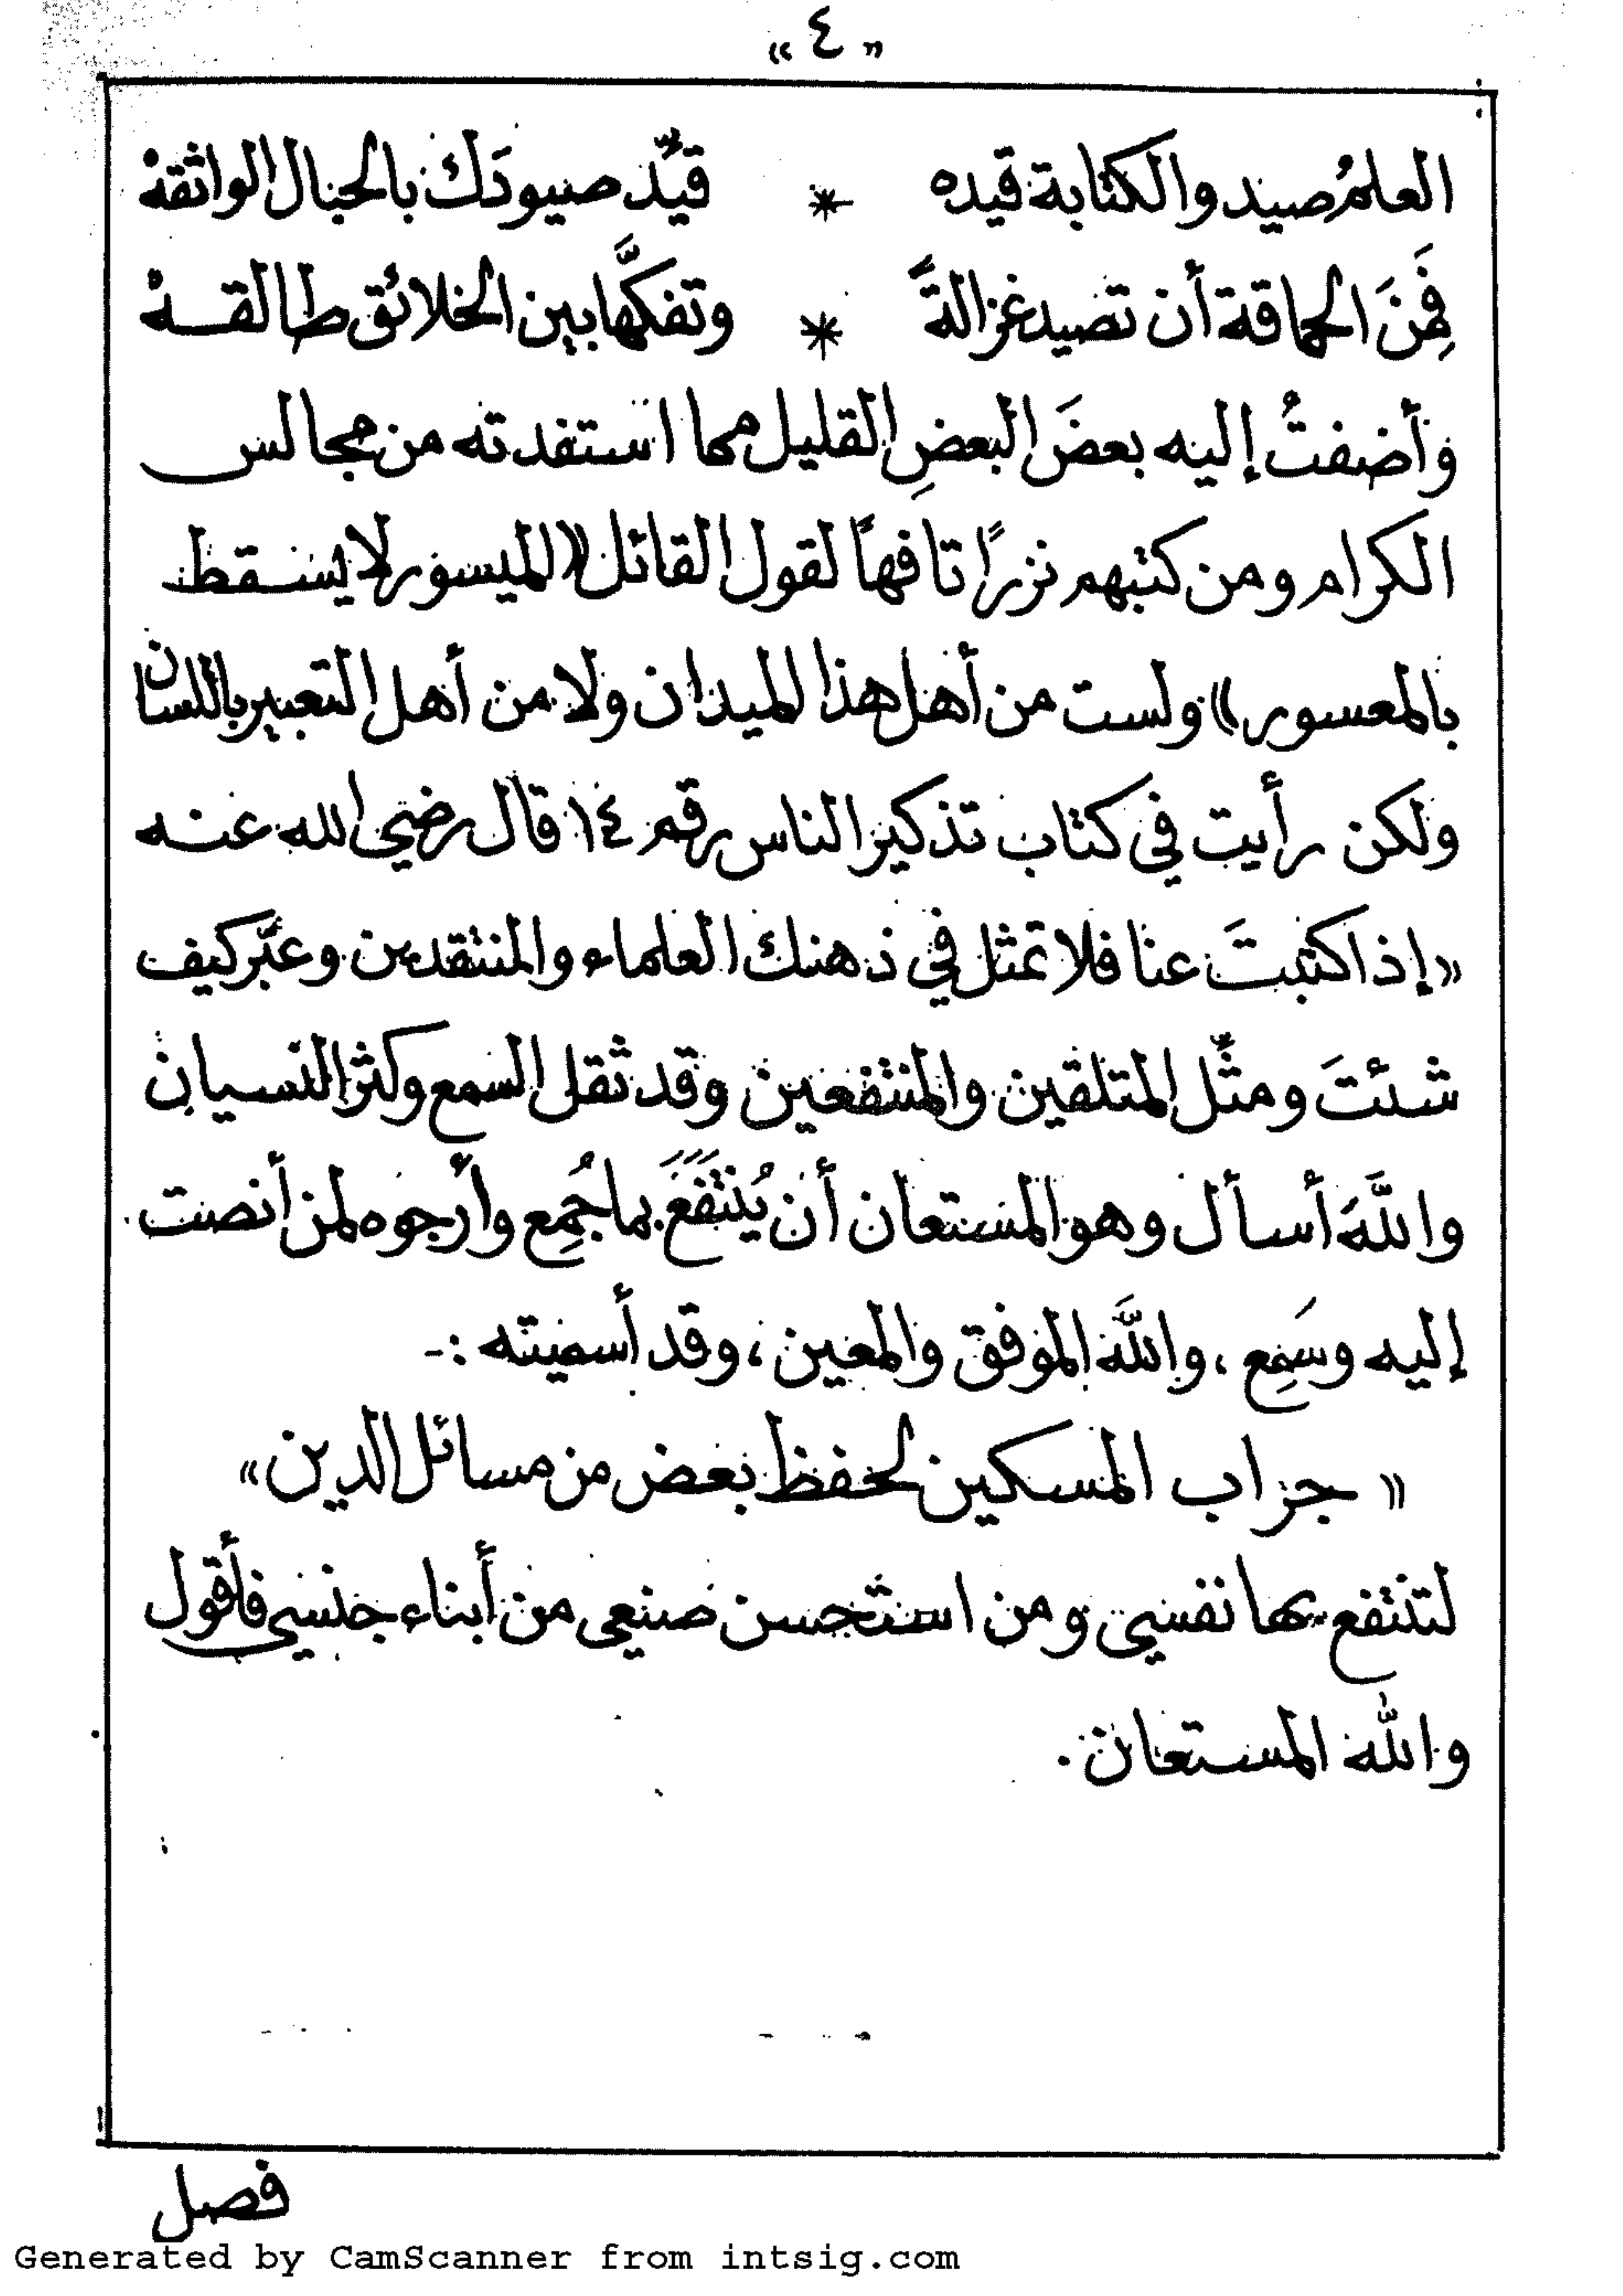 « ٤ »
العلمُ صيد والكتابة قيده * قيِّد صيودَك بالحبال الواثقهْ
فمِنَ الحماقة أن تصيد غزالةً * وتفكَّها بين الخلائق طالقهْ
وأضفتُ إليه بعضَ البعضِ القليل مما استفدته من مجالس
الكرام ومن كتبهم نزرًا تافهاً لقول القائل «الميسور لا يسقط
بالمعسور» ولست من أهل هذا الميدان ولا من أهل التعبير باللسان
ولكن رأيت في كتاب تذكير الناس رقم ١٤ قال رضي الله عنه
«إذا كتبتَ عنا فلا تمثل في ذهنك العلماء والمنتقدين وعبّر كيف
شئتَ ومثِّل المتلقين والمنتفعين وقد ثقل السمع وكثر النسيان
واللَّهَ أسأل وهو المستعان أن يُنتَفَعَ بما جُمِع وأرجوه لمن أنصت
إليه وسَمِع ، واللَّه الموفق والمعين ، وقد أسميته :-
« جراب المسكين لحفظ بعض من مسائل الدين »
لتنتفع بها نفسي ومن استحسن صنيعي من أبناء جنسي فأقول
والله المستعان .
فصل
Generated by CamScanner from intsig.com